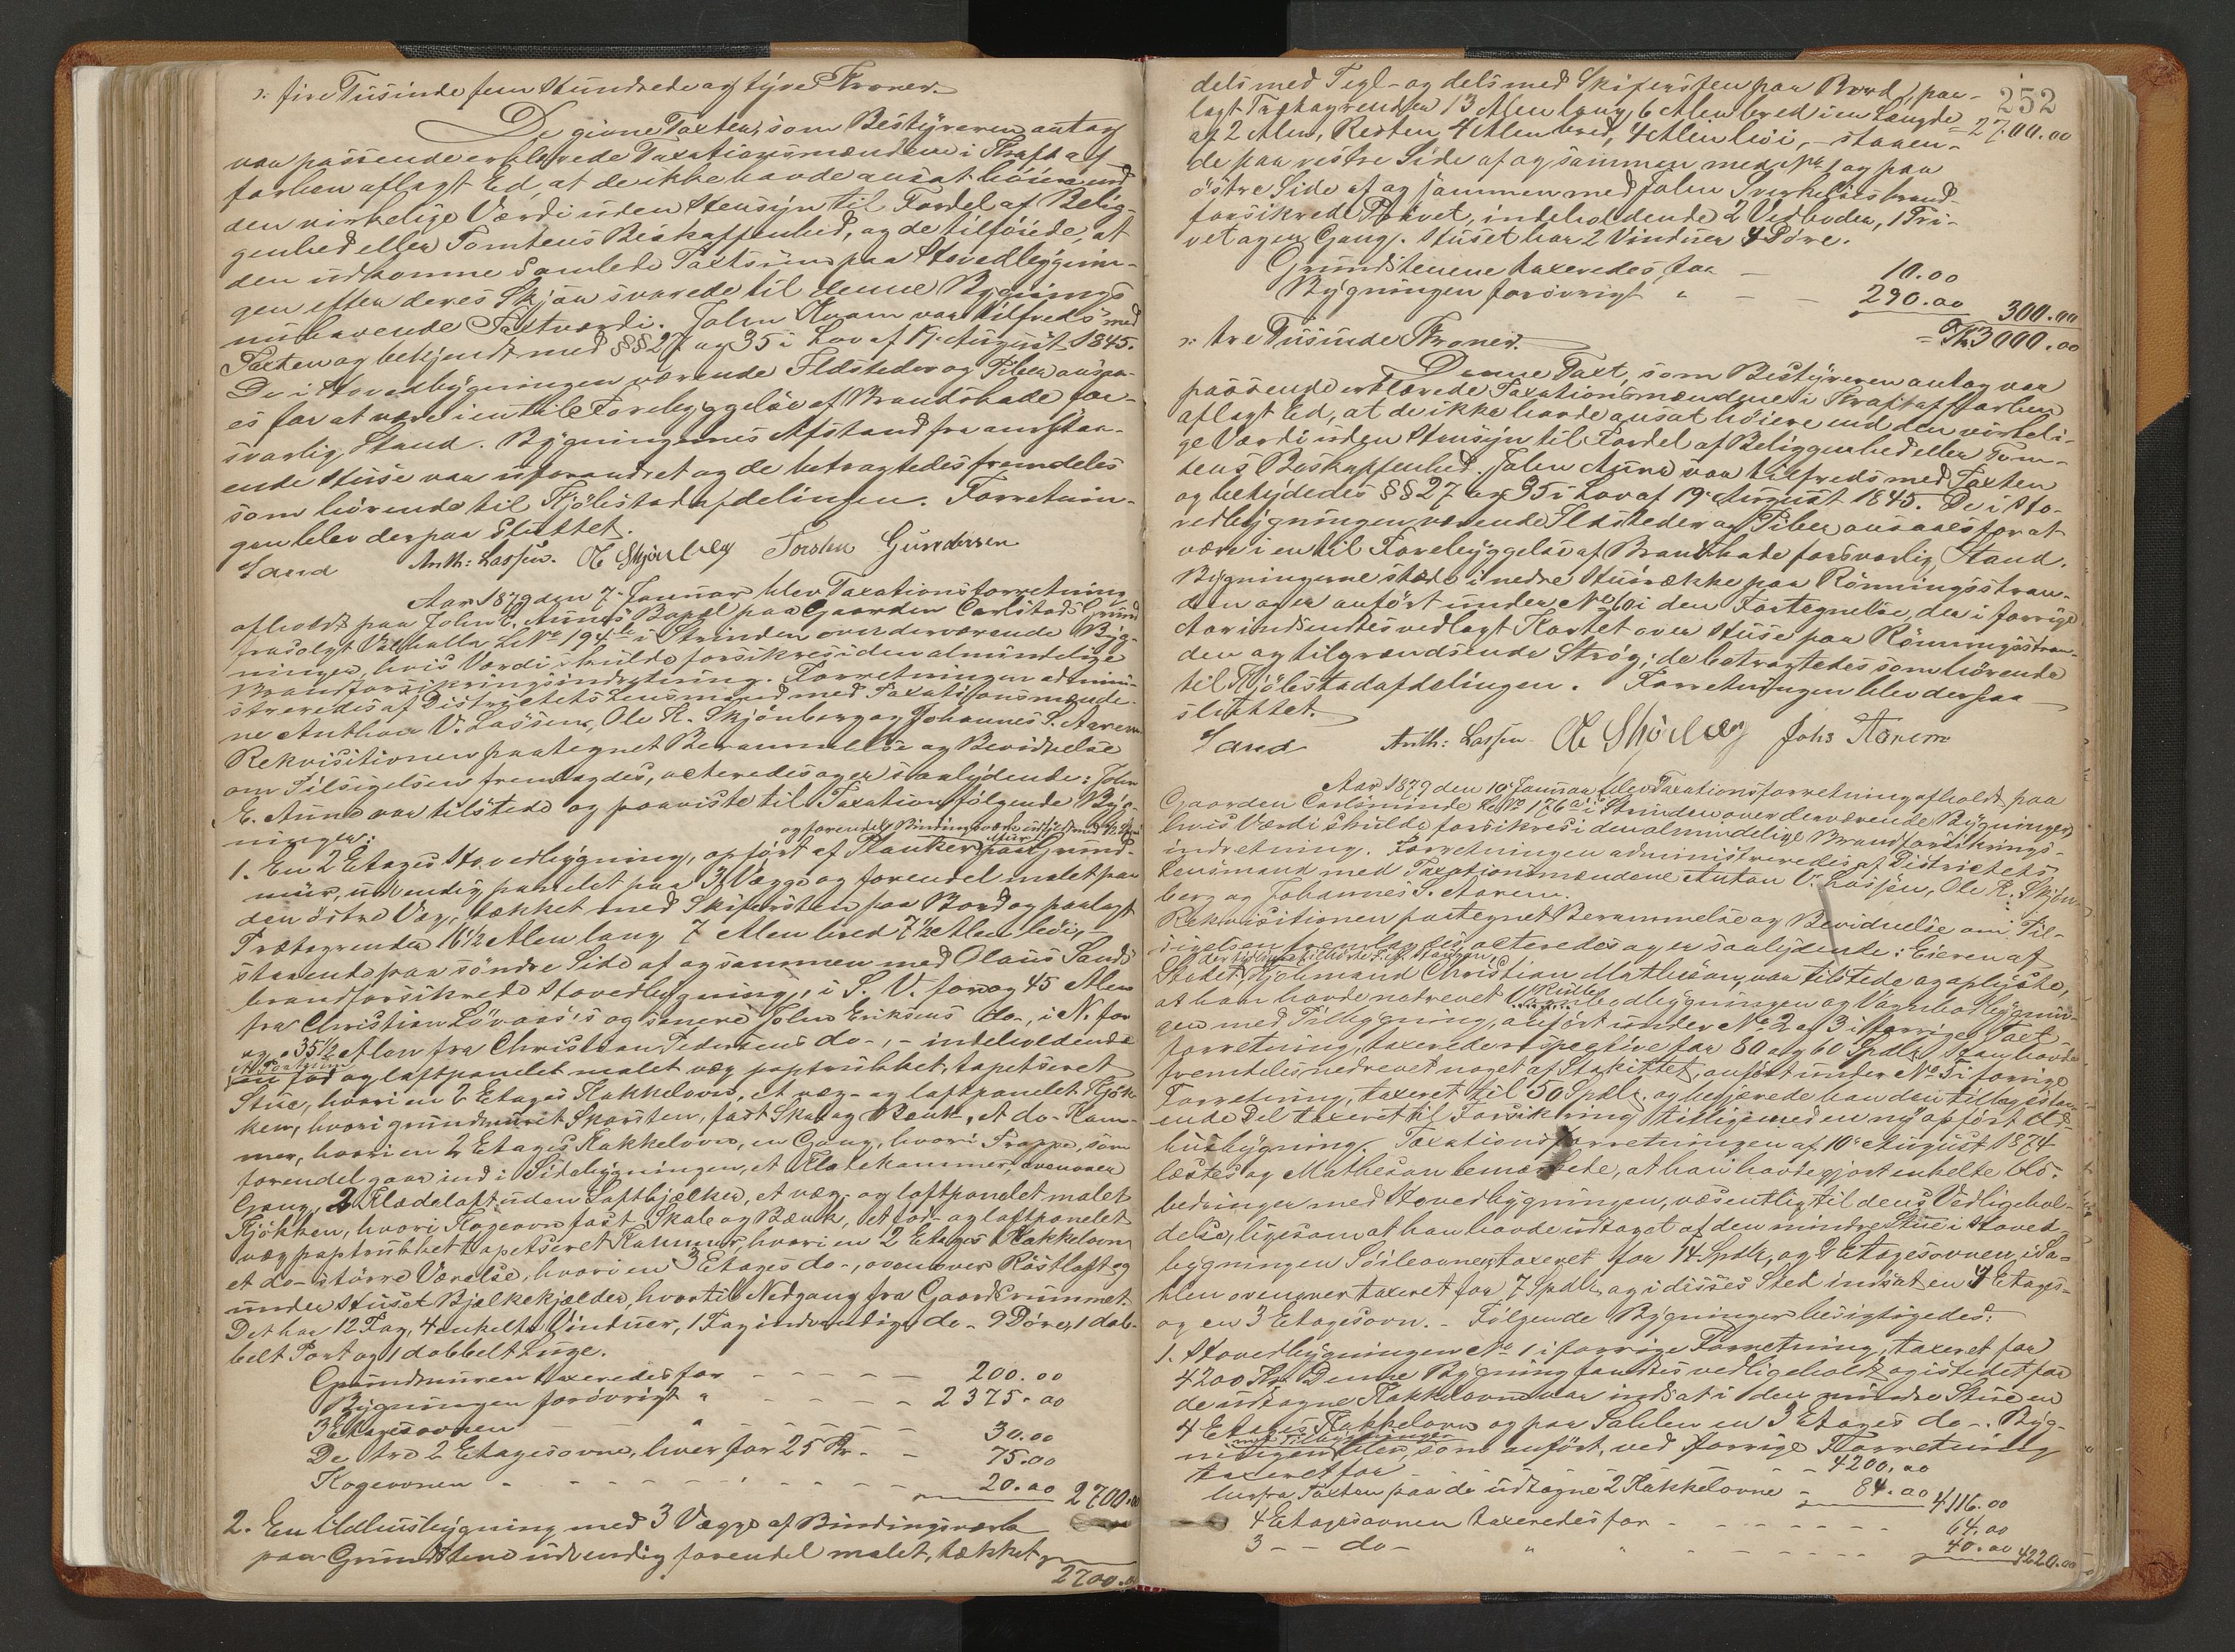 ɔ: fire Tusinde fem Hundrede og tyve Kroner.
De givne Taxter, som Bestyreren antog
var passende erklærede Taxationsmændene i Kraft af
forhen aflagt Ed, at de ikke havde ansat høiere end
den virkelige Værdi uden Hensyn til Fordel af Belig-
genhed eller Tomtens Beskaffenhed, og de tilføiede, at
den udkomne samlede Taxtsum paa Hovedbygnin-
gen efter deres Skjøn svarede til denne Bygnings
nuhavende Taxtværdi. John Kvam var tilfreds med
Taxten og bekjendt med §§ 27 og 35 i Lov af 19. August 1845.
De i Hovedbygningen værende Ildsteder og Piber ansaa-
es for at være i en til Forebyggelse af Brandskade for-
svarlig Stand. Bygningernes Afstand fra omstaa-
ende Huse var uforandret og de betragtedes fremdeles
som hørende til Kjøbstadafdelingen. Forretnin-
gen blev derpaa sluttet.
Sand Anth: Lassen. O K Skjønberg Torsten Gundersen
Aar 1879 den 7. Januar blev Taxationsforretning
afholdt paa John E. Aunes Bopæl paa Gaarden Carlstads Grund
frasolgt Valhalla L. No 194 i Strinden over derværende Byg-
ninger, hvis Værdi skulde forsikres i den almindelige
Brandforsikringsindretning. Forretningen admini-
streredes af Districtets Lensmand med Taxationsmænde-
ne Anthon V. Lassen, Ole K. Skjønberg og Johannes S. Aarem
Rekvisitionen paategnet Berammelse og Bevidnelse
om Tilsigelsen fremlagdes, acteredes og er saalydende: John
E. Aune var tilstede og paaviste til Taxation følgende Byg-
ninger: og forendel Bindingsværk udfyldt med
1. En 2 Etages Hovedbygning, opført af Planker paa Grund-
mur, udvendig panelet paa 3 Vægge og forendel malet paa
den østre Væg, tækket med Skifersten paa Bord og paalagt
Trætagrender 16½ Alen lang 7 Alen bred 7½ Alen høi,
staaende paa søndre Side af og sammen med Olaus Sands
brandforsikrede Hovedbygning, i S. V. for og 45 Alen
fra Christian Løvaas's og senere John Eriksens do-, i N. for
og 35½ Alen fra Christian Pedersens do-, - indeholdende
en for og loftpanelet malet væg paptrukket, tapetseret
Stue, hvori en 2 Etages Kakkelovn, et væg- og loftpanelet Kjøk-
ken, hvori grundmuret Skorsten, fast Skab og Bænk, et do- Kam-
mer, hvori en 2 Etages Kakkelovn, en Gang, hvori Trappe, som
forendel gaar ind i Sidebygningen, et Klædekammer, ovenover
Gang, 2 Klædeloft uden Loftbjælker, et væg- og loftpanelet malet
Kjøkken, hvori Kogeovn fast Skab og Bænk, et for- og loftpanelet
væg paptrukket tapetseret Kammer, hvori en 2 Etages Kakkelovn
et do- større Værelse, hvori en 3 Etages do-, ovenover Røstloft og
under Huset Bjælkekjælder, hvortil Nedgang fra Gaardsrummet.
Det har 12 Fag, 4 enkelte Vinduer, 1 Fag indvendige do- 9 Døre, 1 dob-
belt Port og 1 dobbelt Luge.
Grundmuren taxeredes for - - - - - 200.00
Bygningen forøvrigt " - - - - 2375.00
3 Etagesovnen - - " - - - - 30.00
De tre 2 Etagesovne, hver for 25 Kr. - - 75.00
Kogeovnen - - - - - - - - 20.00 2700.00
2. En Udhusbygning med 3 Vægge af Bindingsværk
paa Grundstene udvendig forendel malet, tækket
2700.00
252
dels med Tegl- og dels med Skifersten paa Bord, paa-
lagt Trætagrender 13 Alen lang 6 Alen bred i en Længde = 2700.00
af 2 Alen, Resten 4 Alen bred, 4 Alen høi, - staaen-
de paa vestre Side af og sammen med No 1 og paa
østre Side af og sammen med John Sverkelies brand-
forsikrede Privet, indeholdende 2 Vedboder, 1 Pri-
vet og en Gang. Huset har 2 Vinduer 4 Døre.
Grundstenene taxeredes for - 10.00
Bygningen forøvrigt " - - 290.00 300.00
ɔ: tre Tusinde Kroner. = Kr 3000.00
Denne Taxt, som Bestyreren antog var
passende erklærede Taxationsmændene i Kraft af forhen
aflagt Ed, at de ikke havde ansat høiere end den virkeli-
ge Værdi uden Hensyn til Fordel af Beliggenhed eller Tom-
tens Beskaffenhed. John Aune var tilfreds med Taxten
og betydedes §§ 27 og 35 i Lov af 19. August 1845. De i Ho-
vedbygningen værende Ildsteder og Piber ansaaes for at
være i en til Forebyggelse af Brandskade forsvarlig Stand.
Bygningerne stode i nedre Husrække paa Rønningsstran-
den og er anført under No 60 i den Fortegnelse, der i forrige
Aar indsendtes vedlagt Kartet over Huse paa Rønningsstran-
den og tilgrændsende Strøg; de betragtedes som hørende
til Kjøbstadafdelingen. Forretningen blev derpaa
sluttet.
Sand Anth: Lassen O K Skjønberg Johs Aarem
Aar 1879 den 10. Januar blev Taxationsforretning afholdt paa
Gaarden Carlsminde L. No 176 a i Strinden over derværende Bygninger,
hvis Værdi skulde forsikres i den almindelige Brandforsikrings-
indretning. Forretningen administreredes af Districtets
Lensmand med Taxationsmændene Anton V. Lassen, Ole K. Skjøn-
berg og Johannes S. Aarem.
Rekvisitionen paategnet Berammelse og Bevidnelse om Til-
sigelsen fremlagdes, acteredes og er saalydende: Eieren af
Stedet, Kjøbmand Christian Matheson, var tilstede og oplyste,
at han havde nedrevet Vognbodbygningen og Vognbodbygnin-
gen med Tilbygning, anført under No 2 og 3 i forrige Taxt-
forretning, taxerede respective for 80 og 60 Spdlr. Han havde
fremdeles nedrevet noget af Stakittet, anført under No 5 i forrige
Forretning, taxeret til 50 Spdlr. og begjærede han den tilbagestaa-
ende Del taxeret til Forsikring tilligemed en ny opført Ud-
husbygning. Taxationsforretningen af 10. August 1874
læstes og Matheson bemærkede, at han havde gjort enkelte For-
bedringer med Hovedbygningen, væsentlig til dens Vedligehol-
delse, ligesom at han havde udtaget af den mindre Stue i Hoved-
bygningen Søileovnen, taxeret for 14 Spdlr, og 2 Etagesovnen i Sa-
len ovenover taxeret for 7 Spdlr. og i disses Sted indsat en 4 Etages-
og en 3 Etagesovn. - Følgende Bygninger besigtigedes:
1. Hovedbygningen No 1 i forrige Forretning, taxeret for
4200 Kr. Denne Bygning fandtes vedligeholdt og istedet for
de udtagne Kakkelovne var indsat i den mindre Stue en
4 Etages Kakkelovn og paa Sahlen en 3 Etages do-. Byg-
ningen blev, som anført, ved forrige Forretning
taxeret for - - - - - 4200.00
herfra Taxten paa de udtagne 2 Kakkelovne - 84.00 4116.00
4 Etagesovnen taxeredes for - - - - - - 64.00
3 - - do - " " - - - - - 40.00 4220.00